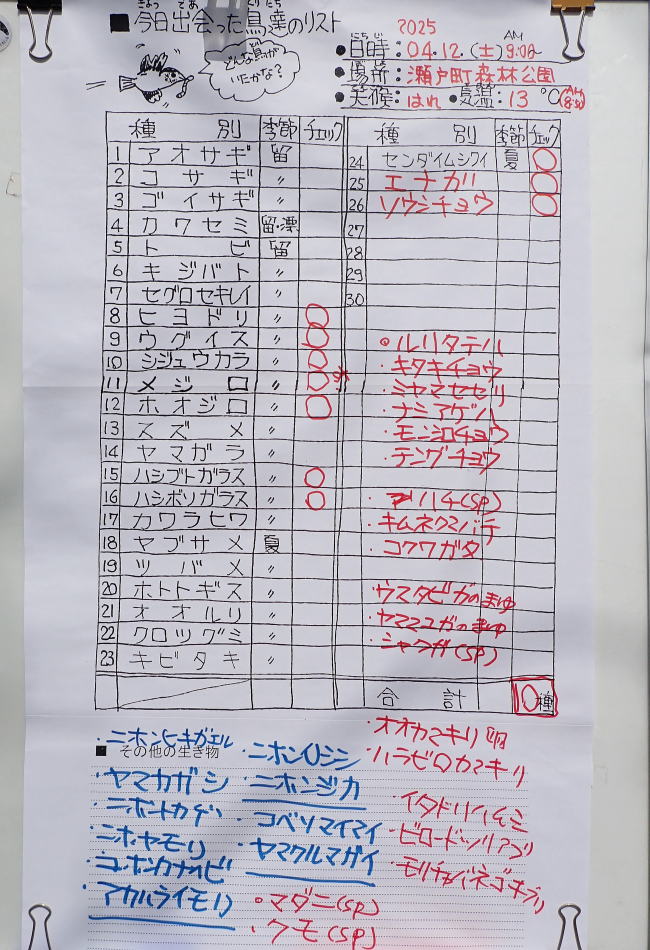 ■今日出会った鳥達のリスト
どんな鳥が
いたかな?
2025
●日時:04.12.(土)AM 9:00~
●場所:瀬戸町森林公園
●天候:はれ ●気温:13℃(AM 8:50)
種別 季節 チェック
1 アオサギ 留
2 コサギ 〃
3 ゴイサギ 〃
4 カワセミ 留・漂
5 トビ 留
6 キジバト 〃
7 セグロセキレイ 〃
8 ヒヨドリ 〃 ○
9 ウグイス 〃 ○
10 シジュウカラ 〃 ○
11 メジロ 〃 ○
12 ホオジロ 〃 ○
13 スズメ 〃
14 ヤマガラ 〃
15 ハシブトガラス 〃 ○
16 ハシボソガラス 〃 ○
17 カワラヒワ 〃
18 ヤブサメ 夏
19 ツバメ 〃
20 ホトトギス 〃
21 オオルリ 〃
22 クロツグミ 〃
23 キビタキ 〃
種別 季節 チェック
24 センダイムシクイ 夏 ○
25 エナガ ○
26 ソウシチョウ ○
27
28
29
30
・ルリタテハ
・キタキチョウ
・ミヤマセセリ
・ナミアゲハ
・モンシロチョウ
・テングチョウ
・ハチ(sp)
・キムネクマバチ
・コクワガタ
・ウスタビガのまゆ
・ヤママユガのまゆ
・シャクガ(sp)
合計 10種
■その他の生き物
・ニホンヒキガエル
・ヤマカガシ
・ニホントカゲ
・ニホンヤモリ
・アカハライモリ
・ニホンイノシシ
・ニホンジカ
・コベソマイマイ
・ヤマクルマガイ
・マダニ(sp)
・クモ(sp)
・オオカマキリ卵
・ハラビロカマキリ
・イタドリハムシ
・ビロードツリアブ
・モリチャバネゴキブリ